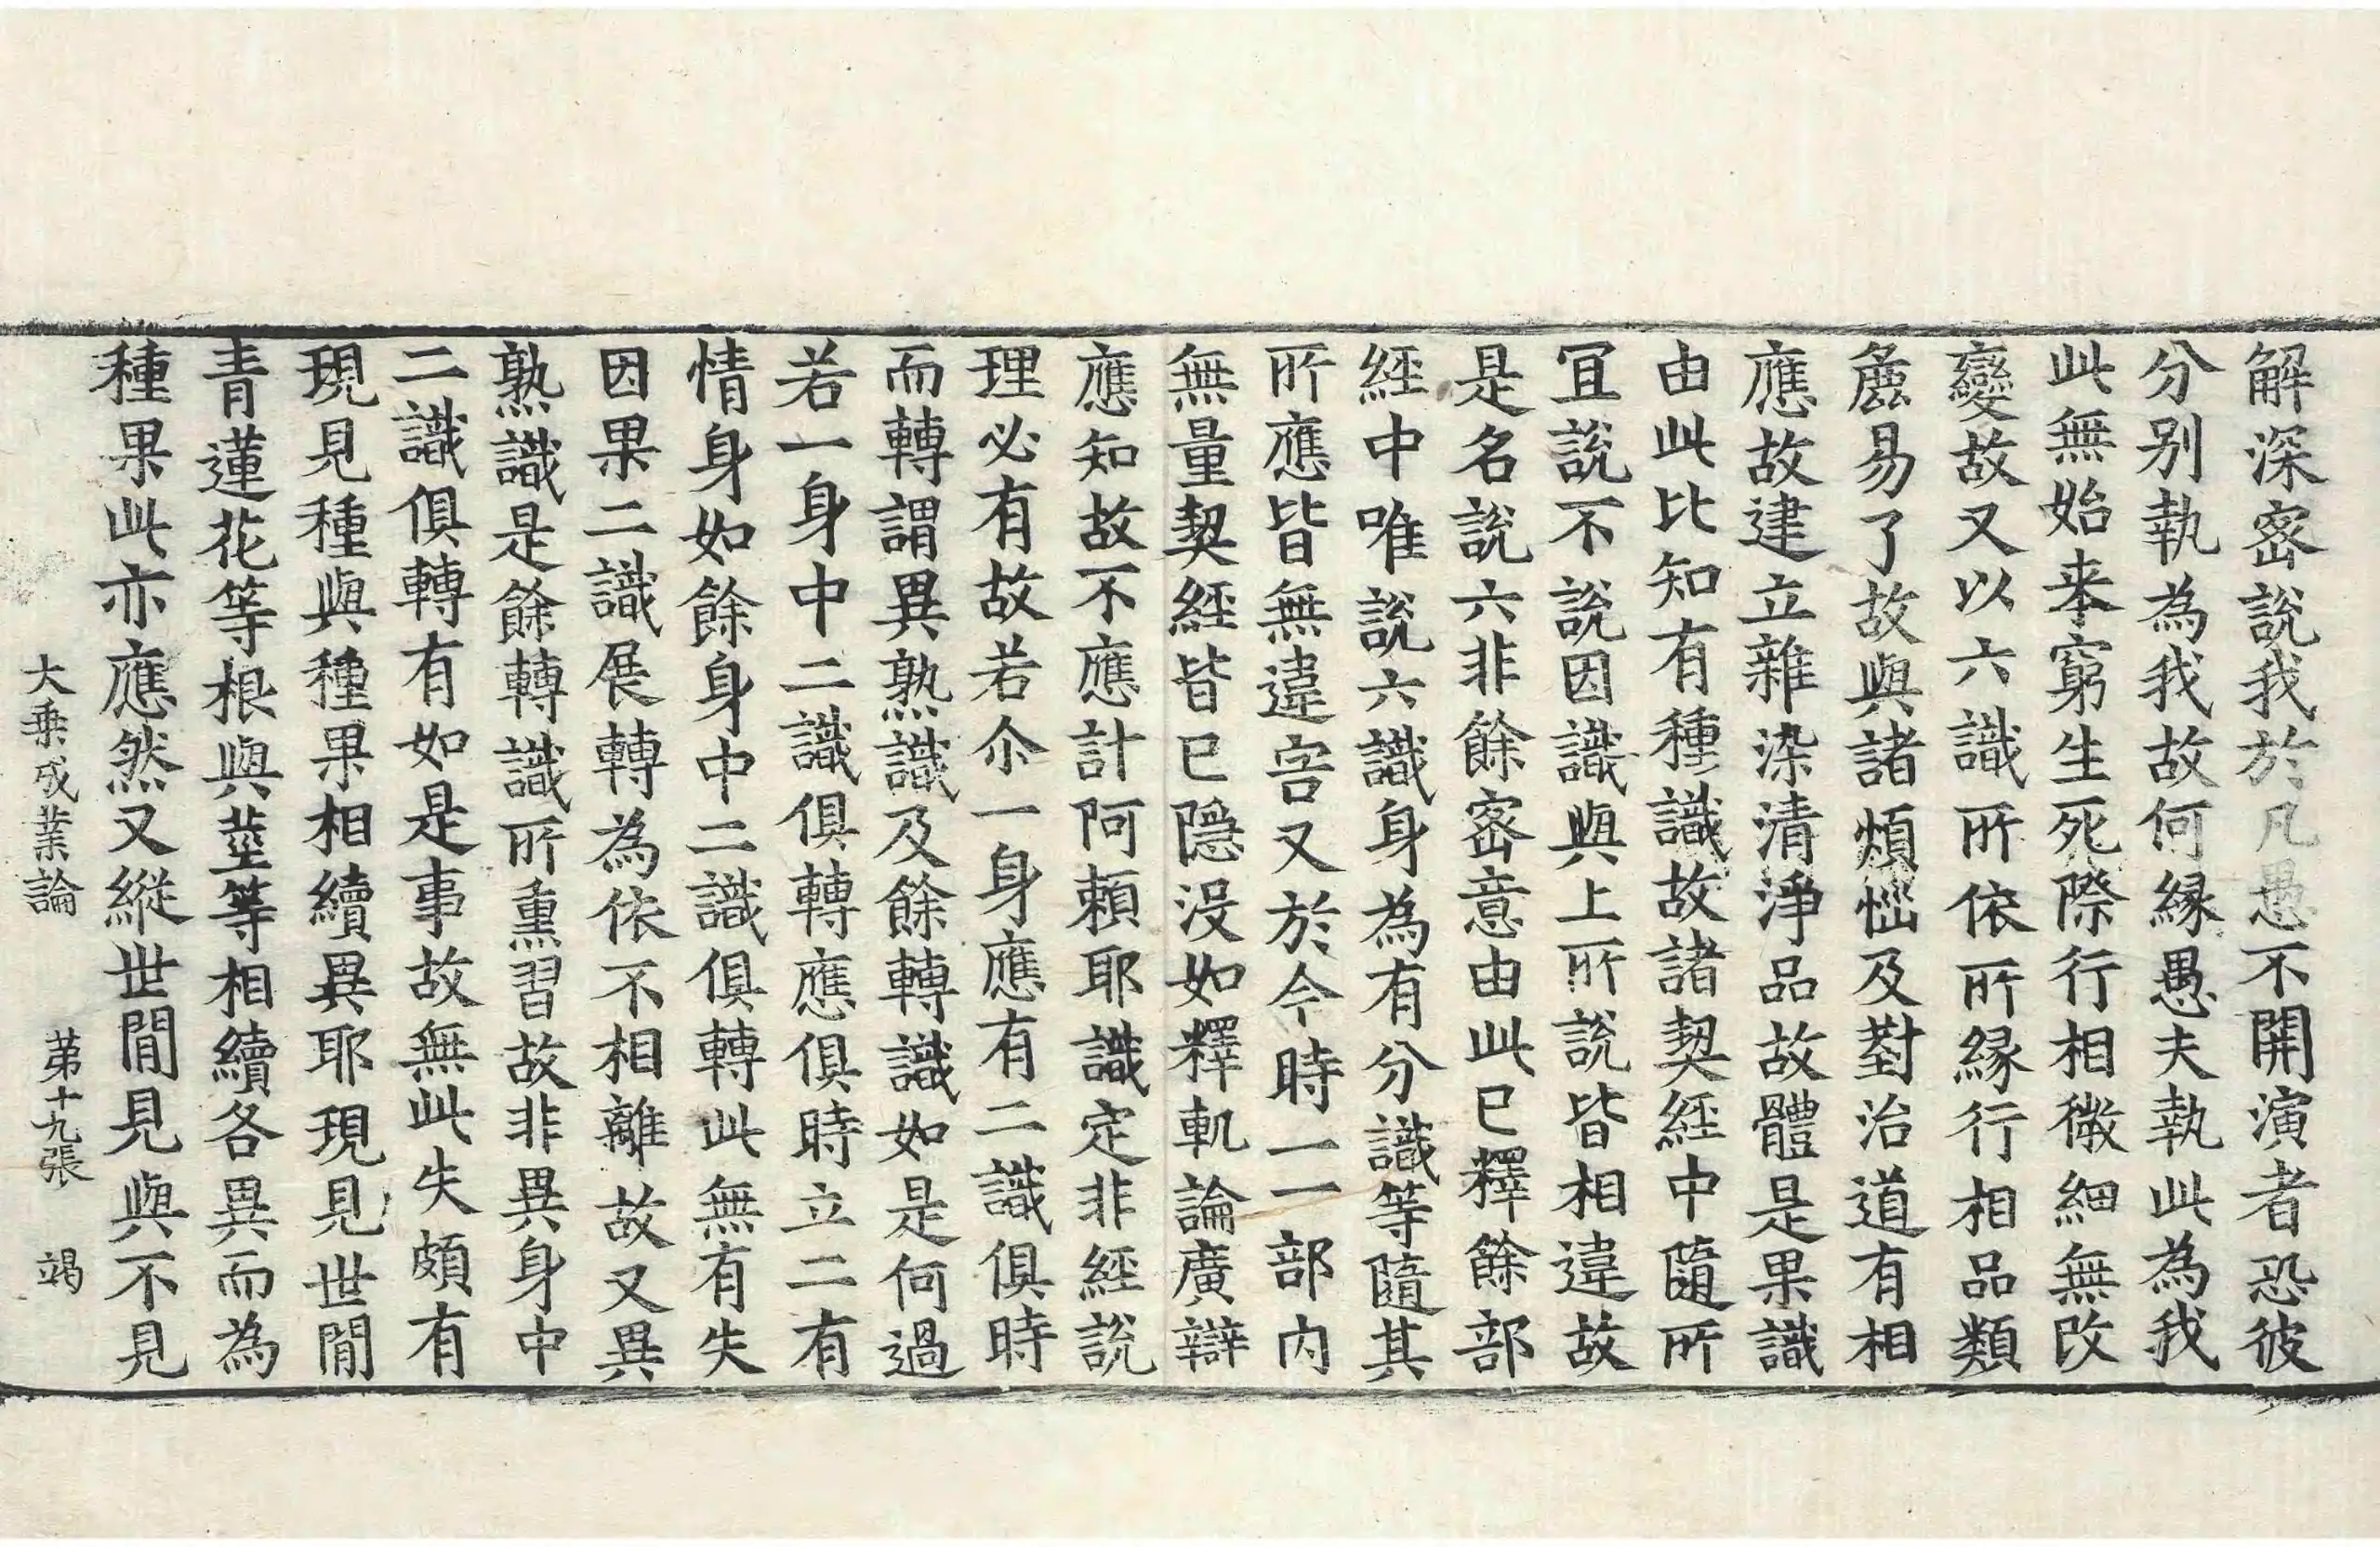 解深密說我於凡愚不開演者恐彼
分別執為我故何縁愚夫執此為我
此無始来窮生死際行相微細無改
變故又以六識所依所縁行相品類
麁易了故與諸煩惱及對治道有相
應故建立雜染清淨品故體是果識
由此比知有種識故諸契經中隨所
冝說不說因識與上所說皆相違故
是名說六非餘密意由此已釋餘部
經中唯說六識身為有分識等隨其
所應皆無違害又於今時一一部内
無量契經皆已隱沒如釋軌論廣辯
應知故不應計阿頼耶識定非經說
理必有故若尒一身應有二識俱時
而轉謂異熟識及餘轉識如是何過
若一身中二識俱轉應俱時立二有
情身如餘身中二識俱轉此無有失
因果二識展轉為依不相離故又異
熟識是餘轉識所熏習故非異身中
二識俱轉有如是事故無此失頗有
現見種與種果相續異耶現見世間
青蓮花等根與莖等相續各異而為
種果此亦應然又縱世間見與不見
大乗成業論　第十九張　竭